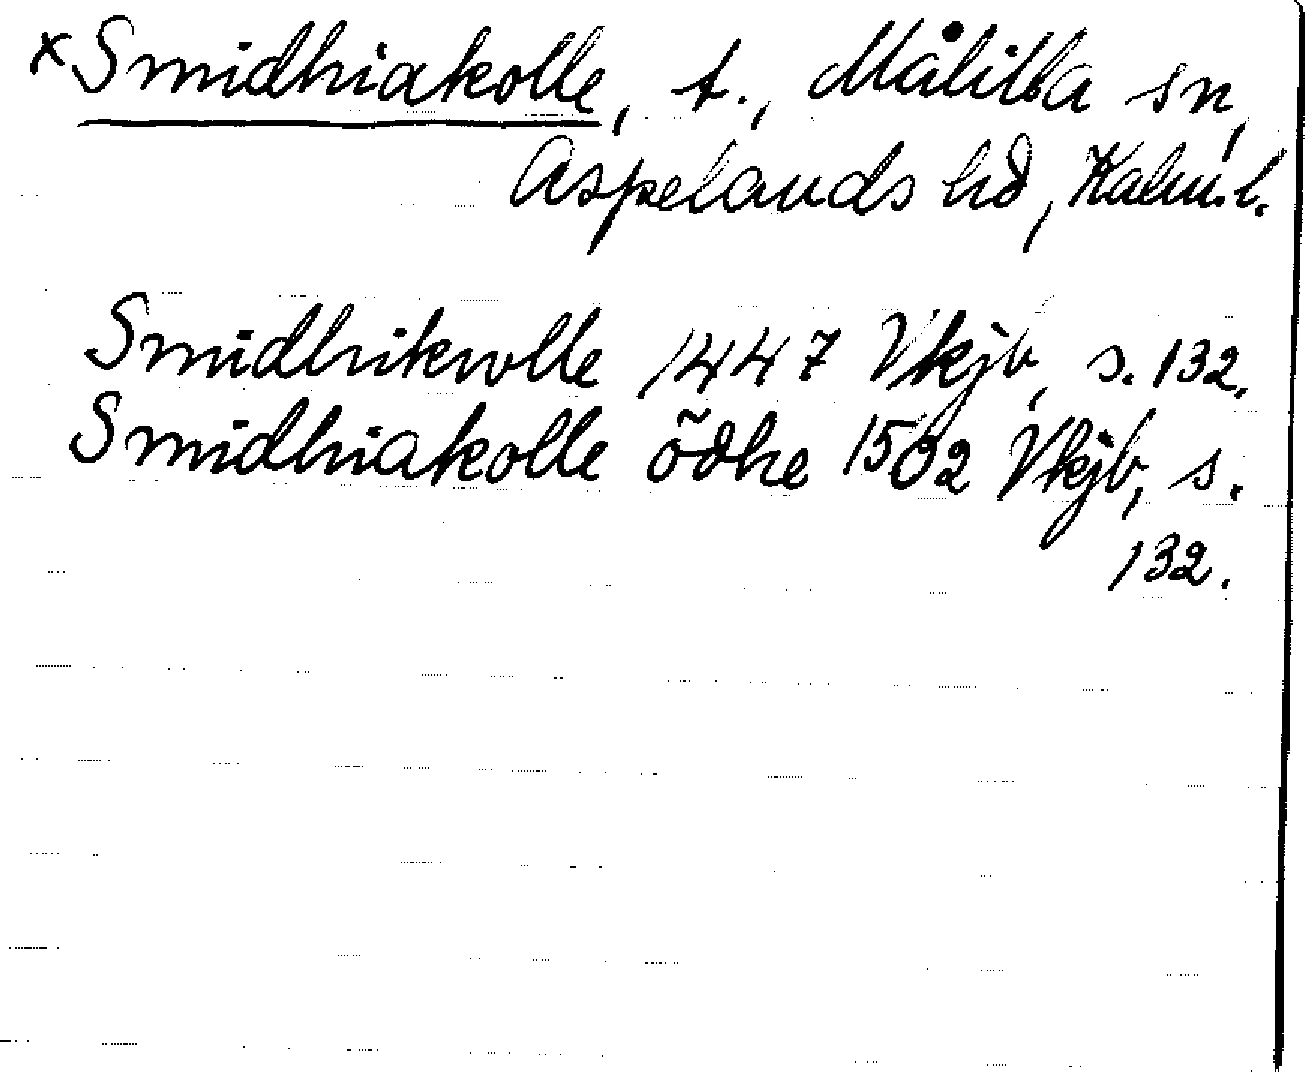 ×Smidhiakolle, t., Målilla sn,
Aspelands hd, Kalm.l.
Smidhikwlle 1447 Vkjb, s. 132.
Smidhiakolle õdhe 1502 Vkjb, s.
132.